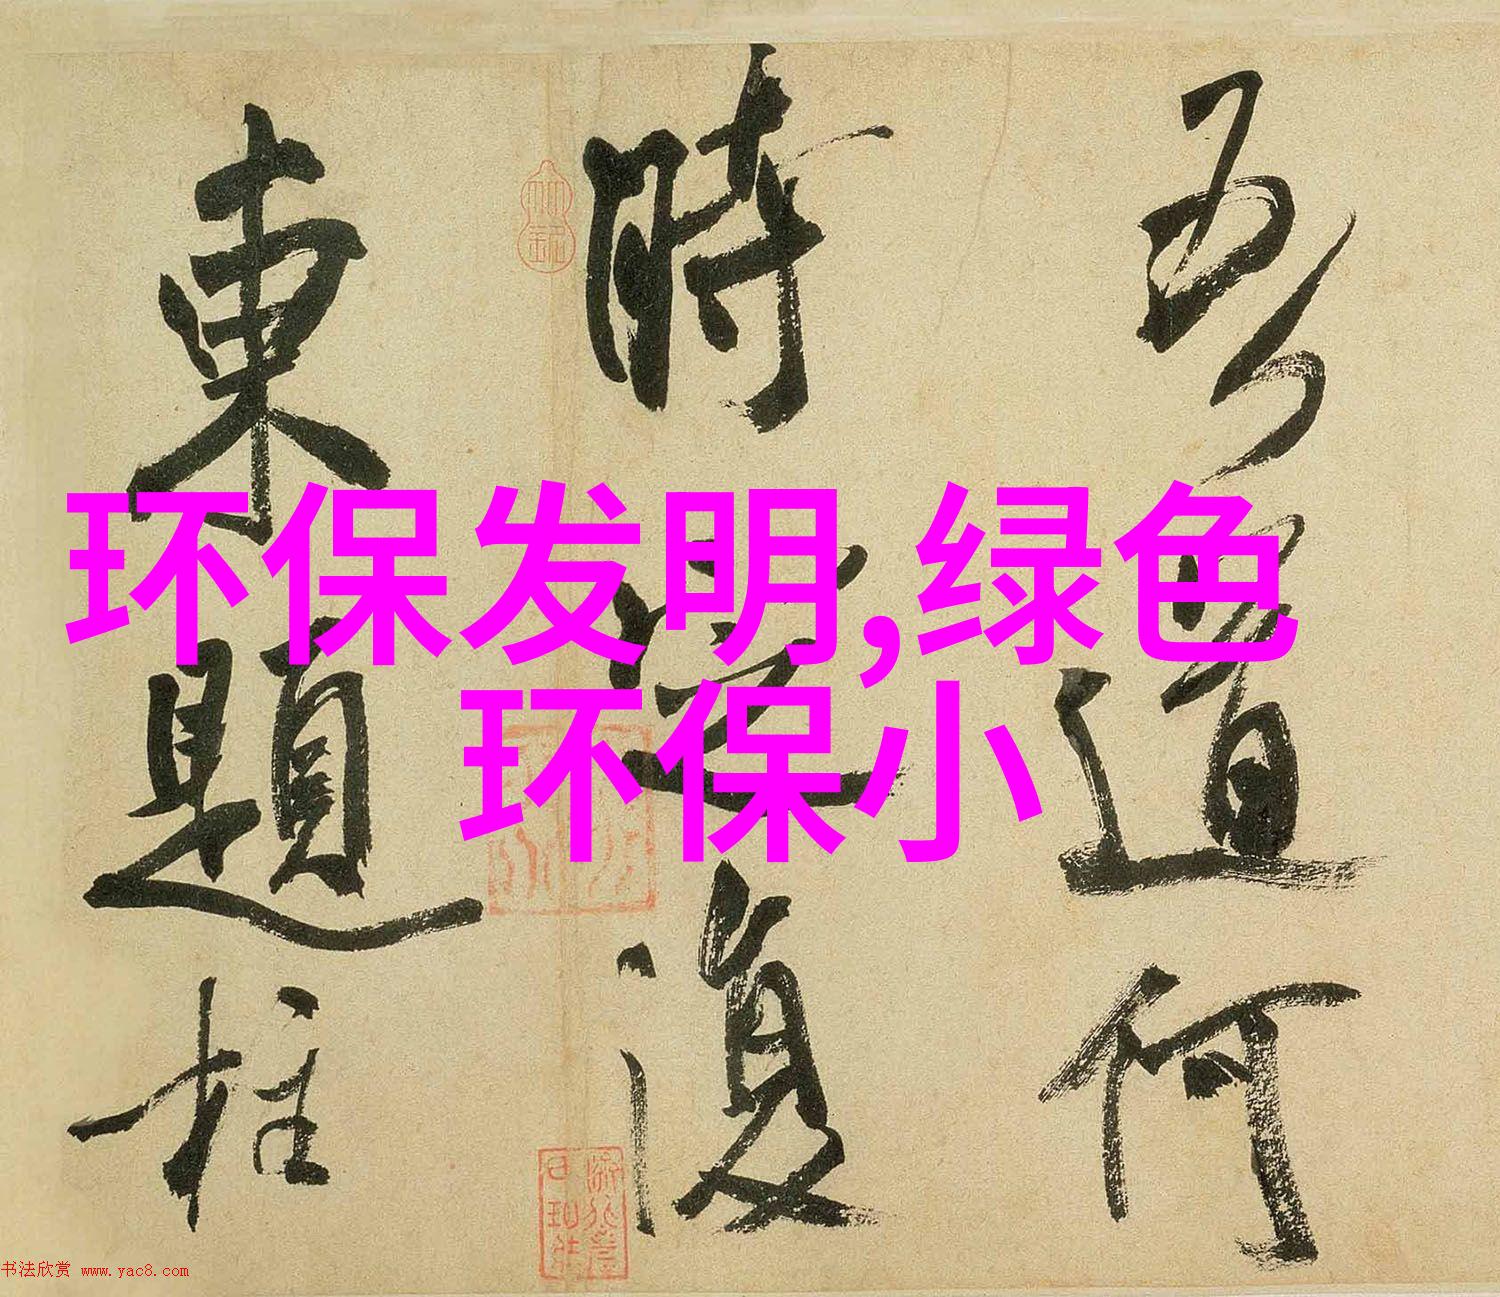 吾道何
時還復
東題柱
环保发明,绿色
环保小
书法欣赏 www.yac8.com